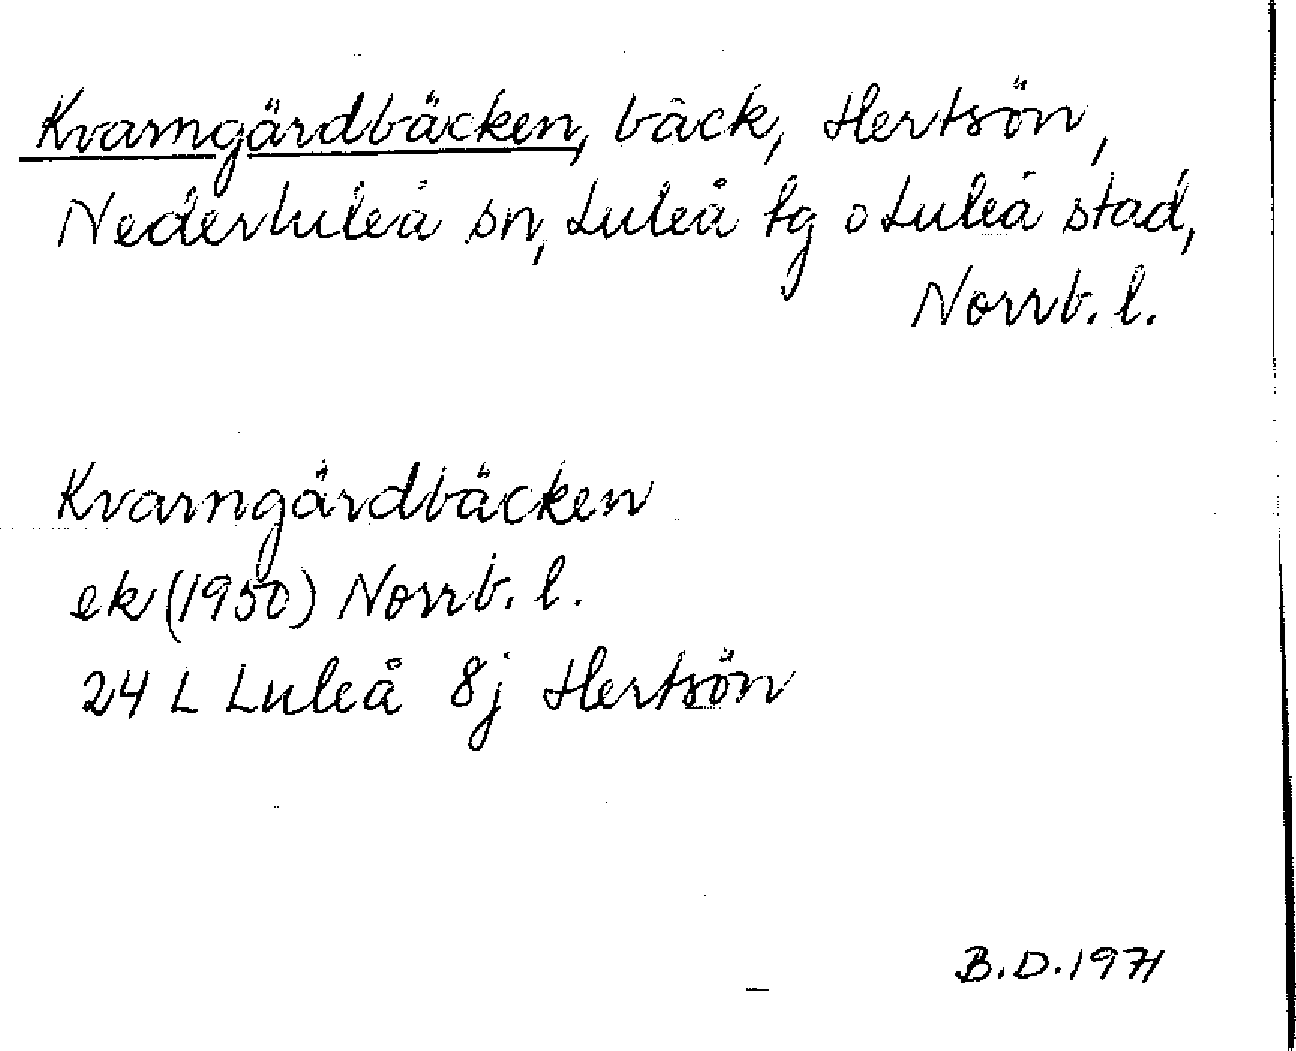 Kvarngärdbäcken, bäck, Hertsön,
Nederluleå sn, Luleå tg o Luleå stad,
Norrb. l.
Kvarngärdbäcken
ek (1950) Norrb. l.
24 L Luleå 8j Hertsön
B.D. 1971